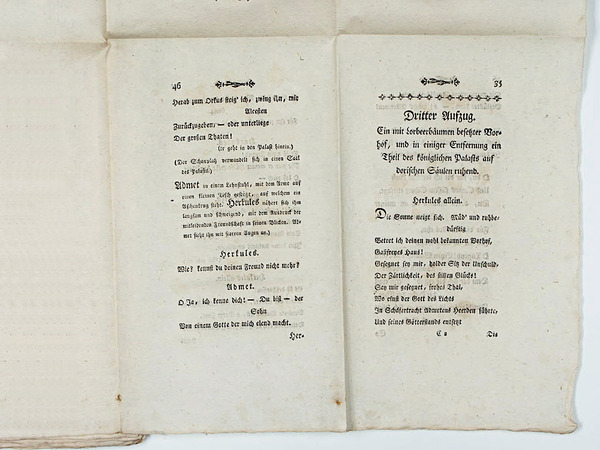 46
Herab zum Orkus steig' ich, zwing ihn, mir
Alcesten
Zurückzugeben, — oder unterliege
Der großen Thaten!
(er geht in den Palast hinein.)
(Der Schauplatz verwandelt sich in einen Saal
des Palasts.)
Admet in einem Lehnstuhl, mit dem Arme auf
einen kleinen Tisch gestützt, auf welchem ein
Aschenkrug steht. Herkules nähert sich ihm
langsam und schweigend, mit dem Ausdruck der
mitleidenden Freundschaft in seinen Blicken. Ad-
met sieht ihn mit starren Augen an.)
Herkules.
Wie? kennst du deinen Freund nicht mehr?
Admet.
O Ja, ich kenne dich! — Du bist — der
Sohn
Von einem Gotte der mich elend macht.
Her-
35
Dritter Aufzug.
Ein mit Lorbeerbäumen besetzter Vor-
hof, und in einiger Entfernung ein
Theil des königlichen Palasts auf
dorischen Säulen ruhend.
Herkules allein.
Die Sonne neigt sich. Müd' und ruhbe-
dürftig
Betret ich deinen wohl bekannten Vorhof,
Gastfreyes Haus!
Gesegnet sey mir, holder Sitz der Unschuld,
Der Zärtlichkeit, des stillen Glücks!
Sey mir gesegnet, frohes Thal,
Wo einst der Gott des Lichts
In Schäfertracht Admetens Heerden führte,
Und seines Götterstands entsetzt
C 2
Die